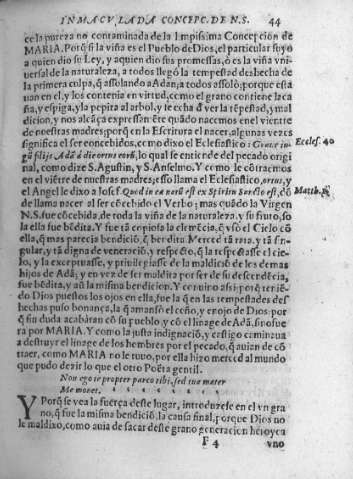 INMACVLADA CONCEPC. DE N.S. 44
ce la pureza no contaminada de la Impissima Concepcion de
MARIA. Porq̃ si la viña es el Pueblo de Dios, el particular suyo
a quien dio su Ley, y a quien dio sus promessas, ò es la viña vni-
uersal de la naturaleza, a todos llegò la tempestad deshecha de
la primera culpa, q̃ assolando a Adan; a todos assolò; porque esta
uan en el, y los contenia en virtud, como el grano contiene la ca
ña, y espiga, y la pepita al arbol, y se echa ver la tẽpestad, y mal
dicion, y nos alcãça expressamẽte quãdo nacemos en el vientre
de nuestras madres; porq̃ en la Escritura el nacer, algunas vezes
significa el ser concebidos, como dixo el Eclesiastico: Graue iu-
gũ filijs Adã à die ortus eorũ, lo qual se entiende del pecado origi
nal, como dize S. Agustin, y S. Anselmo. Y como le cõtraemos
en el viẽtre de nuestras madres; esso llama el Eclesiastico, ortus, y
el Angel le dixo a Iosef. Quod in ea natũ est ex Spiritu Sancto est, dõ
de llama nacer al ser cõcebido el Verbo; mas quãdo la Virgen
N.S. fue cõcebida, de toda la viña de la naturaleza, y su fruto, so
la ella fue bẽdita. Y fue tã copiosa la clemẽcia, q̃ vsò el Cielo cõ
ella, q̃ mas parecia bendiciõ, q̃ bendita Merced tã rara, y tã sin-
gular, y tã digna de veneraciõ, y respecto, q̃ la respectasse el cie-
lo, y la exceptuasse, y priuilegiasse de la maldiciõ de los demas
hijos de Adã; y en vez de ser maldita por ser de su descendẽcia,
fue bẽdita, y aũ la misma bendicion. Y conuino assi: porq̃ teniẽ-
do Dios puestos los ojos en ella, fue la q̃ en las tempestades des
hechas puso bonança, la q̃ amansò el ceño, y enojo de Dios: por
q̃ sin duda acabàran cõ su pueblo, y cõ el linage de Adã, si no fue
ra por MARIA. Y como la justa indignaciò, y castigo caminaua
a destruyr el linage de los hombres por el pecado, q̃ auian de con
traer, como MARIA no le tuuo, por ella hizo merced al mundo
que pudo dezir lo que el otro Poëta gentil.
Non ego te propter parco tibi, sed tua mater
Me monet,
Y Porq̃ se vea la fuerça deste lugar, introduzese en el vn gra
no, q̃ fue la misma bendiciõ, la causa final, porque Dios no
le maldixo, como auia de sacar deste grano generacion heroyca
F 4 vno
Eccles. 40
Matth.